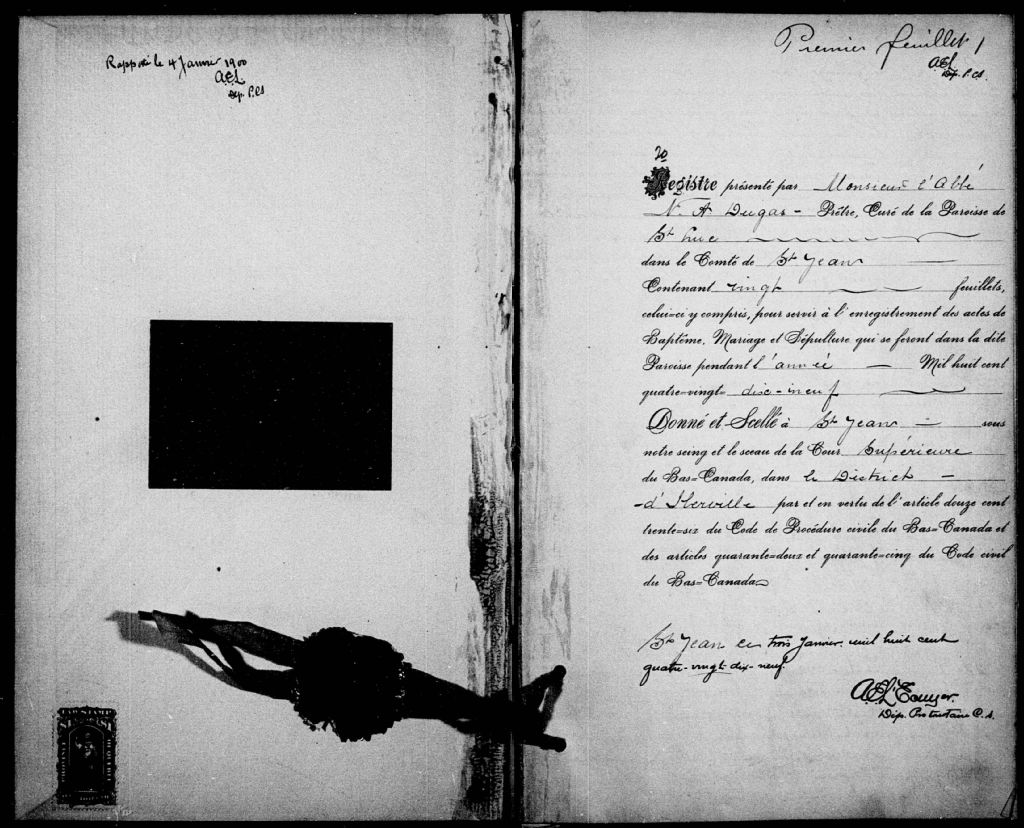 Rapporté le 4 Janvier 1900
Dép. P.C.S
Premier feuillet 1
Dép. P.C.S.
20
Registre présenté par Monsieur l'Abbé
N. A Dugas - Prêtre, Curé de la Paroisse de
St Luc
dans le Comté de St Jean
Contenant vingt feuillets,
celui=ci y compris, pour servir à l'enregistrement des actes de
Baptême, Mariage et Sépulture qui se feront dans la dite
Paroisse pendant l'année — Mil huit cent
quatre=vingt= dix-neuf
Donné et Scellé à St Jean — sous
notre seing et le sceau de la Cour Supérieure
du Bas=Canada, dans le District —
-d'Iberville par et en vertu de l'article douze cent
trente=six du Code de Procédure civile du Bas=Canada et
des articles quarante=deux et quarante=cinq du Code civil
du Bas=Canada
St Jean ce trois Janvier mil huit cent
quatre-vingt dix-neuf.
Dép. Protonotaire C.S.